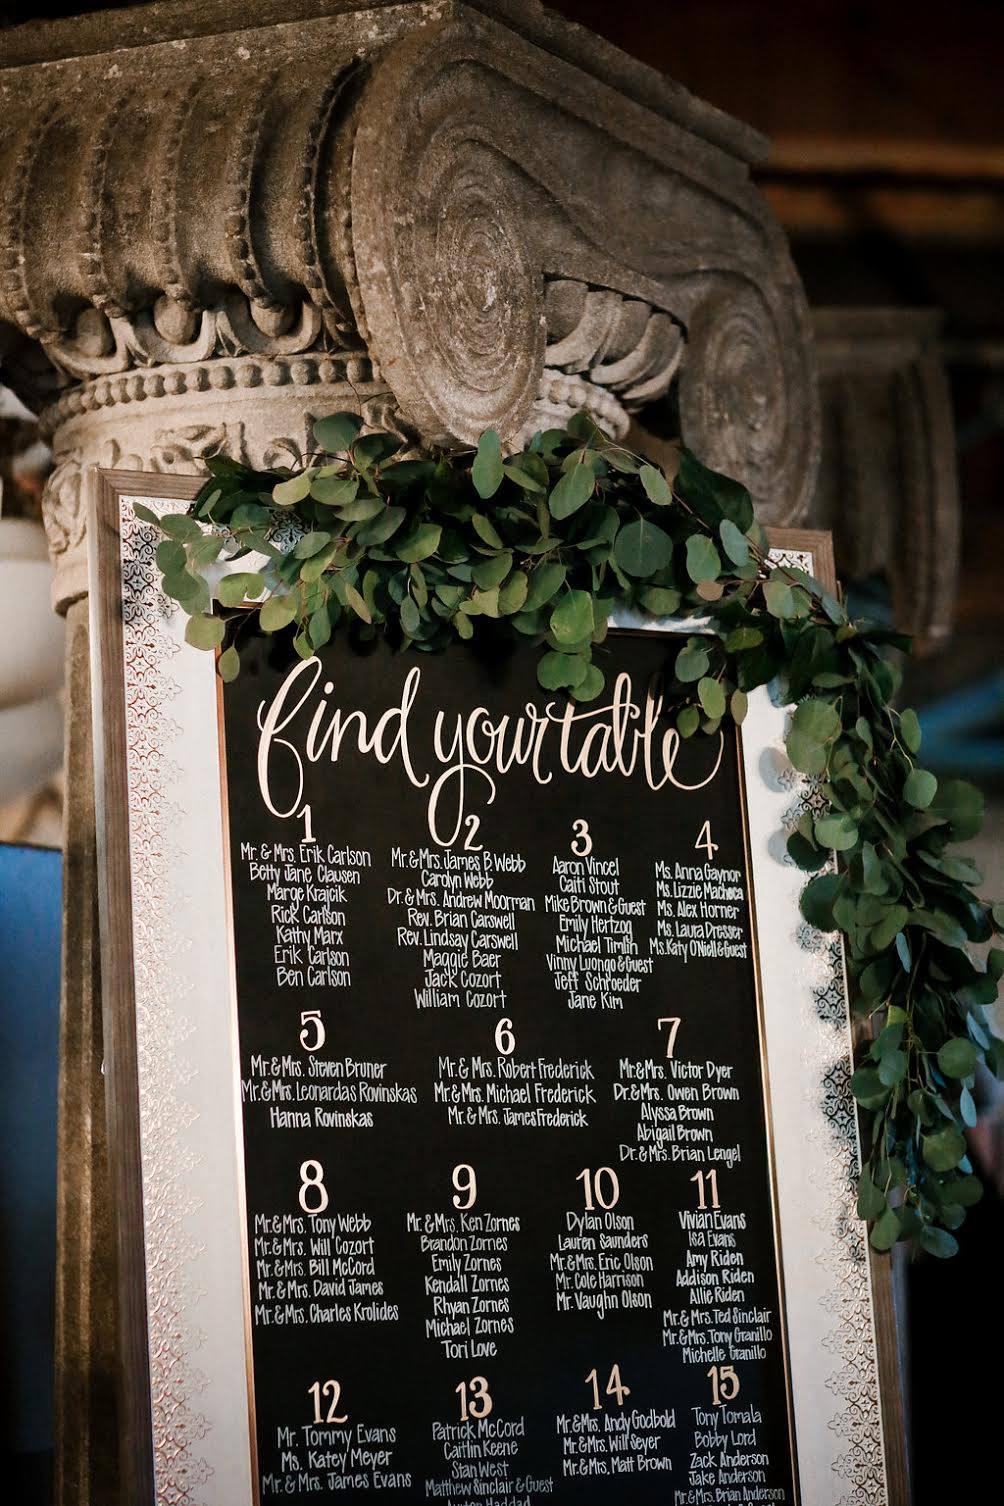 find your table
1
Mr. & Mrs. Erik Carlson
Betty Jane Clausen
Marge Krajcik
Rick Carlson
Kathy Marx
Erik Carlson
Ben Carlson
2
Mr. & Mrs. James B Webb
Carolyn Webb
Dr. & Mrs. Andrew Moorman
Rev. Brian Carswell
Rev. Lindsay Carswell
Maggie Baer
Jack Cozort
William Cozort
3
Aaron Vincel
Caiti Stout
Mike Brown & Guest
Emily Hertzog
Michael Timlin
Vinny Luongo & Guest
Jeff Schroeder
Jane Kim
4
Ms. Anna Gaynor
Ms. Lizzie Macheca
Ms. Alex Horner
Ms. Laura Dresser
Ms. Katy O'Niell & Guest
5
Mr. & Mrs. Steven Bruner
Mr. & Mrs. Leonardas Rovinskas
Hanna Rovinskas
6
Mr. & Mrs. Robert Frederick
Mr. & Mrs. Michael Frederick
Mr. & Mrs. James Frederick
7
Mr. & Mrs. Victor Dyer
Dr. & Mrs. Owen Brown
Alyssa Brown
Abigail Brown
Dr. & Mrs. Brian Lengel
8
Mr. & Mrs. Tony Webb
Mr. & Mrs. Will Cozort
Mr. & Mrs. Bill McCord
Mr. & Mrs. David James
Mr. & Mrs. Charles Krolides
9
Mr. & Mrs. Ken Zornes
Brandon Zornes
Emily Zornes
Kendall Zornes
Rhyan Zornes
Michael Zornes
Tori Love
10
Dylan Olson
Lauren Saunders
Mr. & Mrs. Eric Olson
Mr. Cole Harrison
Mr. Vaughn Olson
11
Vivian Evans
Isa Evans
Amy Riden
Addison Riden
Allie Riden
Mr. & Mrs. Ted Sinclair
Mr. & Mrs. Tony Granillo
Michelle Granillo
12
Mr. Tommy Evans
Ms. Katey Meyer
Mr. & Mrs. James Evans
13
Patrick McCord
Caitlin Keene
Stan West
Matthew Sinclair & Guest
Haddad
14
Mr. & Mrs. Andy Godbold
Mr. & Mrs. Will Seyer
Mr. & Mrs. Matt Brown
15
Tony Tomala
Bobby Lord
Zack Anderson
Jake Anderson
Mr. & Mrs. Brian Anderson